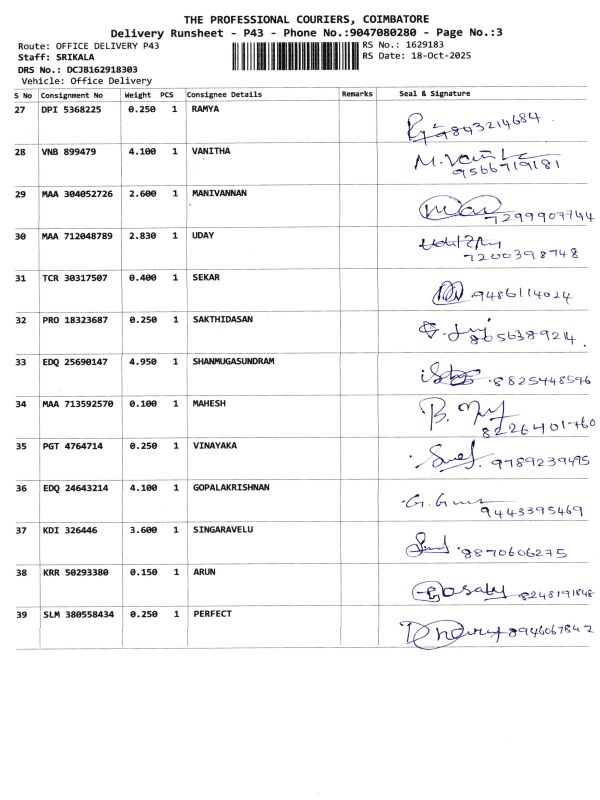 THE PROFESSIONAL COURIERS, COIMBATORE
Delivery Runsheet - P43 - Phone No.:9047080280 - Page No.:3
Route: OFFICE DELIVERY P43 RS No.: 1629183
Staff: SRIKALA RS Date: 18-Oct-2025
DRS No.: DCJB162918303
Vehicle: Office Delivery
S No Consignment No Weight PCS Consignee Details Remarks Seal & Signature
27 DPI 5368225 0.250 1 RAMYA
9843214684
28 VNB 899479 4.100 1 VANITHA
9566719181
29 MAA 304052726 2.600 1 MANIVANNAN
7299907744
30 MAA 712048789 2.830 1 UDAY
7200398748
31 TCR 30317507 0.400 1 SEKAR
9486114024
32 PRO 18323687 0.250 1 SAKTHIDASAN
8056389214
33 EDQ 25690147 4.950 1 SHANMUGASUNDRAM
8825448596
34 MAA 713592570 0.100 1 MAHESH
8226401760
35 PGT 4764714 0.250 1 VINAYAKA
9789239495
36 EDQ 24643214 4.100 1 GOPALAKRISHNAN
9443395469
37 KDI 326446 3.600 1 SINGARAVELU
8870606275
38 KRR 50293380 0.150 1 ARUN
8248191848
39 SLM 380558434 0.250 1 PERFECT
8946067842